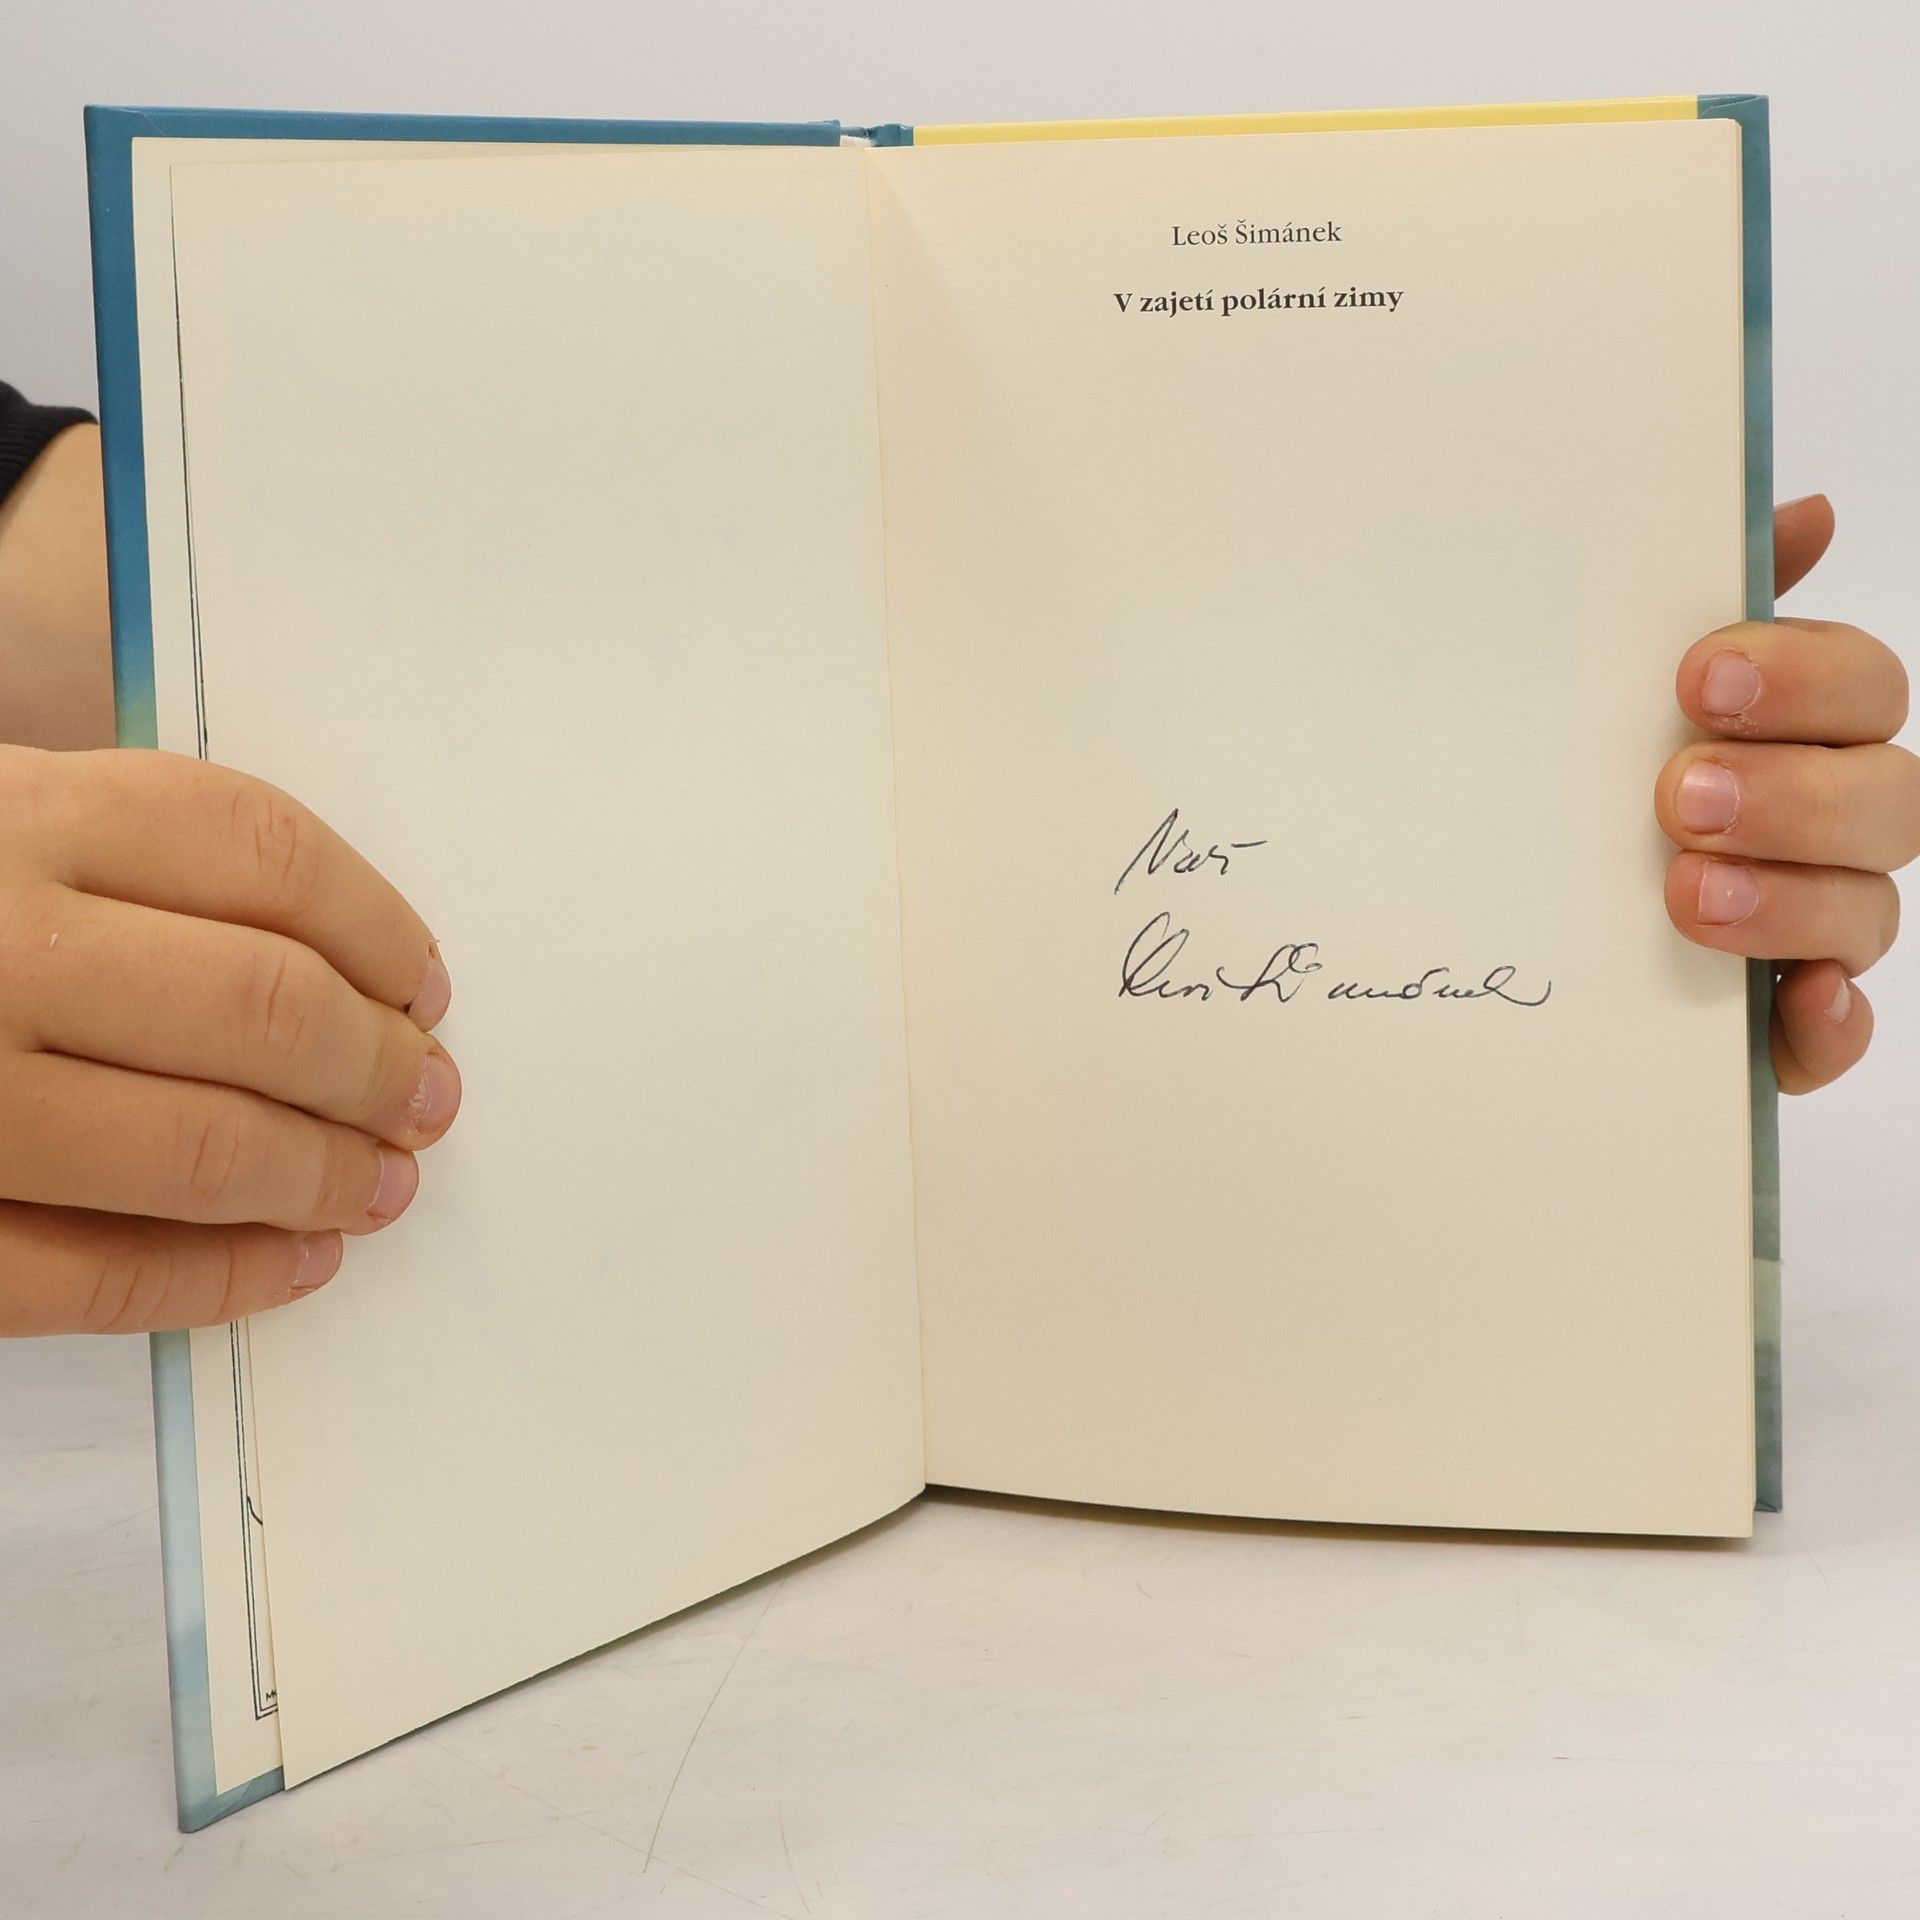 Leoš Šimánek
V zajetí polární zimy
Váš
Leoš Šimánek